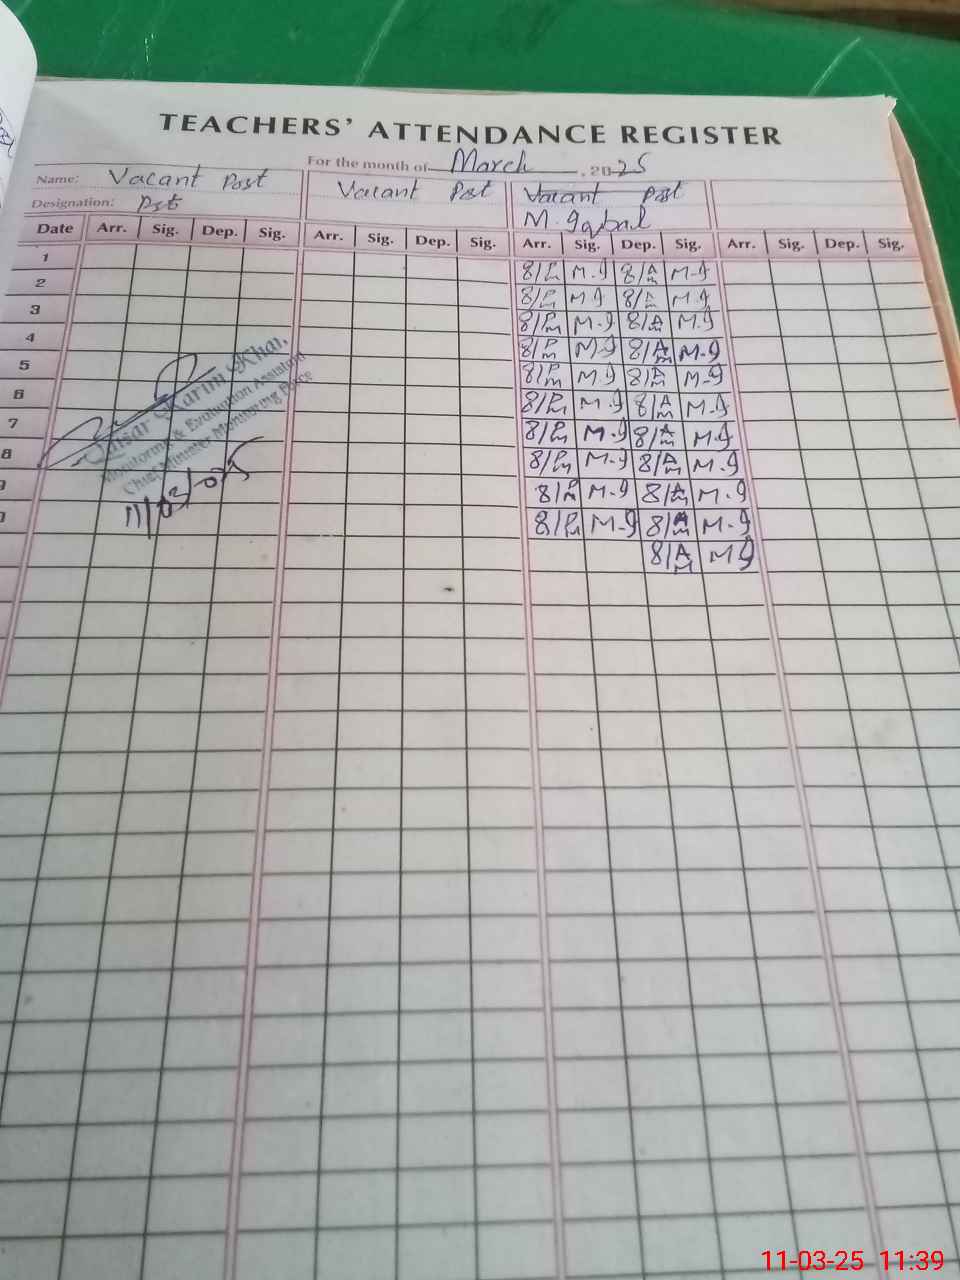 TEACHERS' ATTENDANCE REGISTER
For the month of March, 2025
Name: Vacant Post
Designation: Pst
Vacant Post
Vacant Post
M. Iqbal
Date Arr. Sig. Dep. Sig. Arr. Sig. Dep. Sig. Arr. Sig. Dep. Sig. Arr. Sig. Dep. Sig.
1 8/Pm M-I 8/Am M-I
2 8/Pm M-I 8/Am M-I
3 8/Pm M-I 8/Am M-I
4 8/Pm M-I 8/Am M-I
5 8/Pm M-I 8/Am M-I
6 8/Pm M-I 8/Am M-I
7 8/Pm M-I 8/Am M-I
8 8/Pm M-I 8/Am M-I
8/Pm M-I 8/Am M-I
8/Pm M-I 8/Am M-I
8/AM M-I
Qaisar Karim Khan
Monitoring & Evaluation Assistant
Chief Minister Monitoring Force
11/03/025
11-03-25 11:39